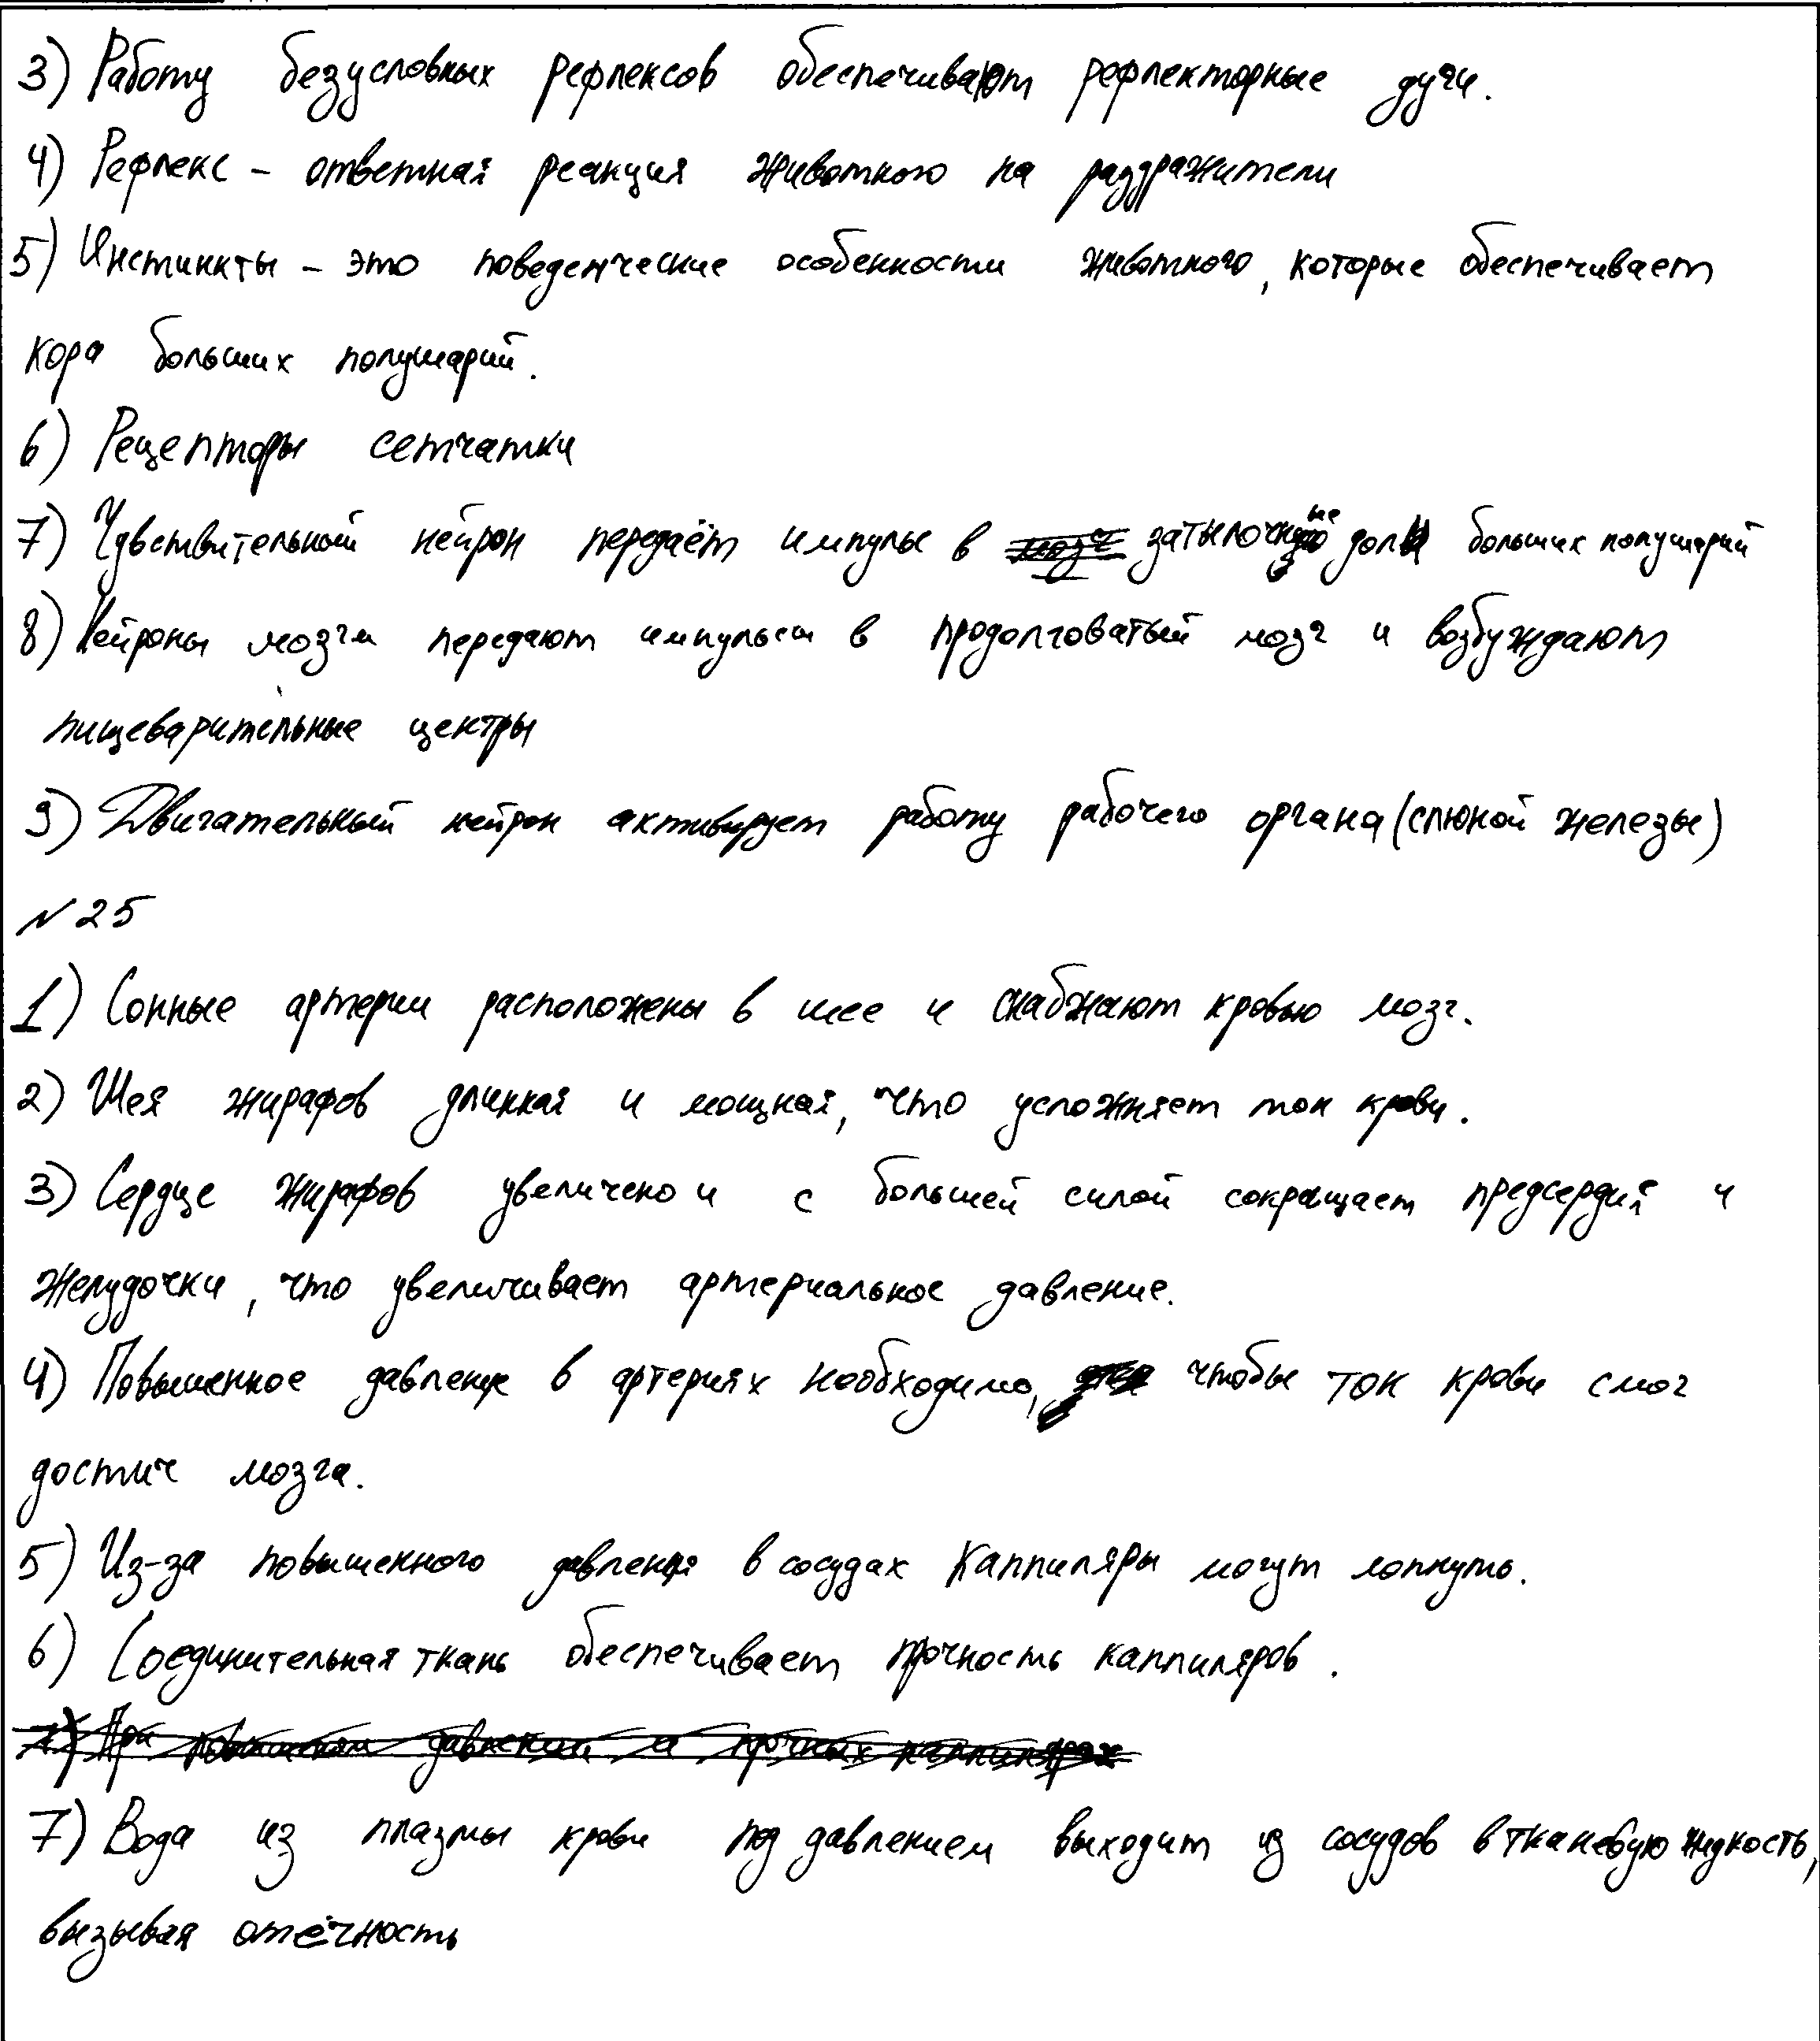 3) Работу безусловных рефлексов обеспечивают рефлекторные дуги.
4) Рефлекс - ответная реакция животного на раздражители
5) Инстинкты - это поведенческие особенности животного, которые обеспечивает
кора больших полушарий.
6) Рецепторы сетчатки
7) Чувствительный нейрон передаёт импульс в затылочные доли больших полушарий
8) Нейроны мозга передают импульсы в продолговатый мозг и возбуждают
пищеварительные центры
9) Двигательный нейрон активирует работу рабочего органа (слюной железы)
№25
1) Сонные артерии расположены в шее и снабжают кровью мозг.
2) Шея жирафов длинная и мощная, что усложняет ток крови.
3) Сердце жирафов увеличено и с большей силой сокращает предсердия и
желудочки, что увеличивает артериальное давление.
4) Повышенное давление в артериях необходимо, чтобы ток крови смог
достич мозга.
5) Из-за повышенного давления в сосудах каппиляры могут лопнуть.
6) Соединительная ткань обеспечивает прочность каппиляров.
7) При повышенном давлении и прочных каппилярах
7) Вода из плазмы крови под давлением выходит из сосудов в тканевую жидкость,
вызывая отёчность